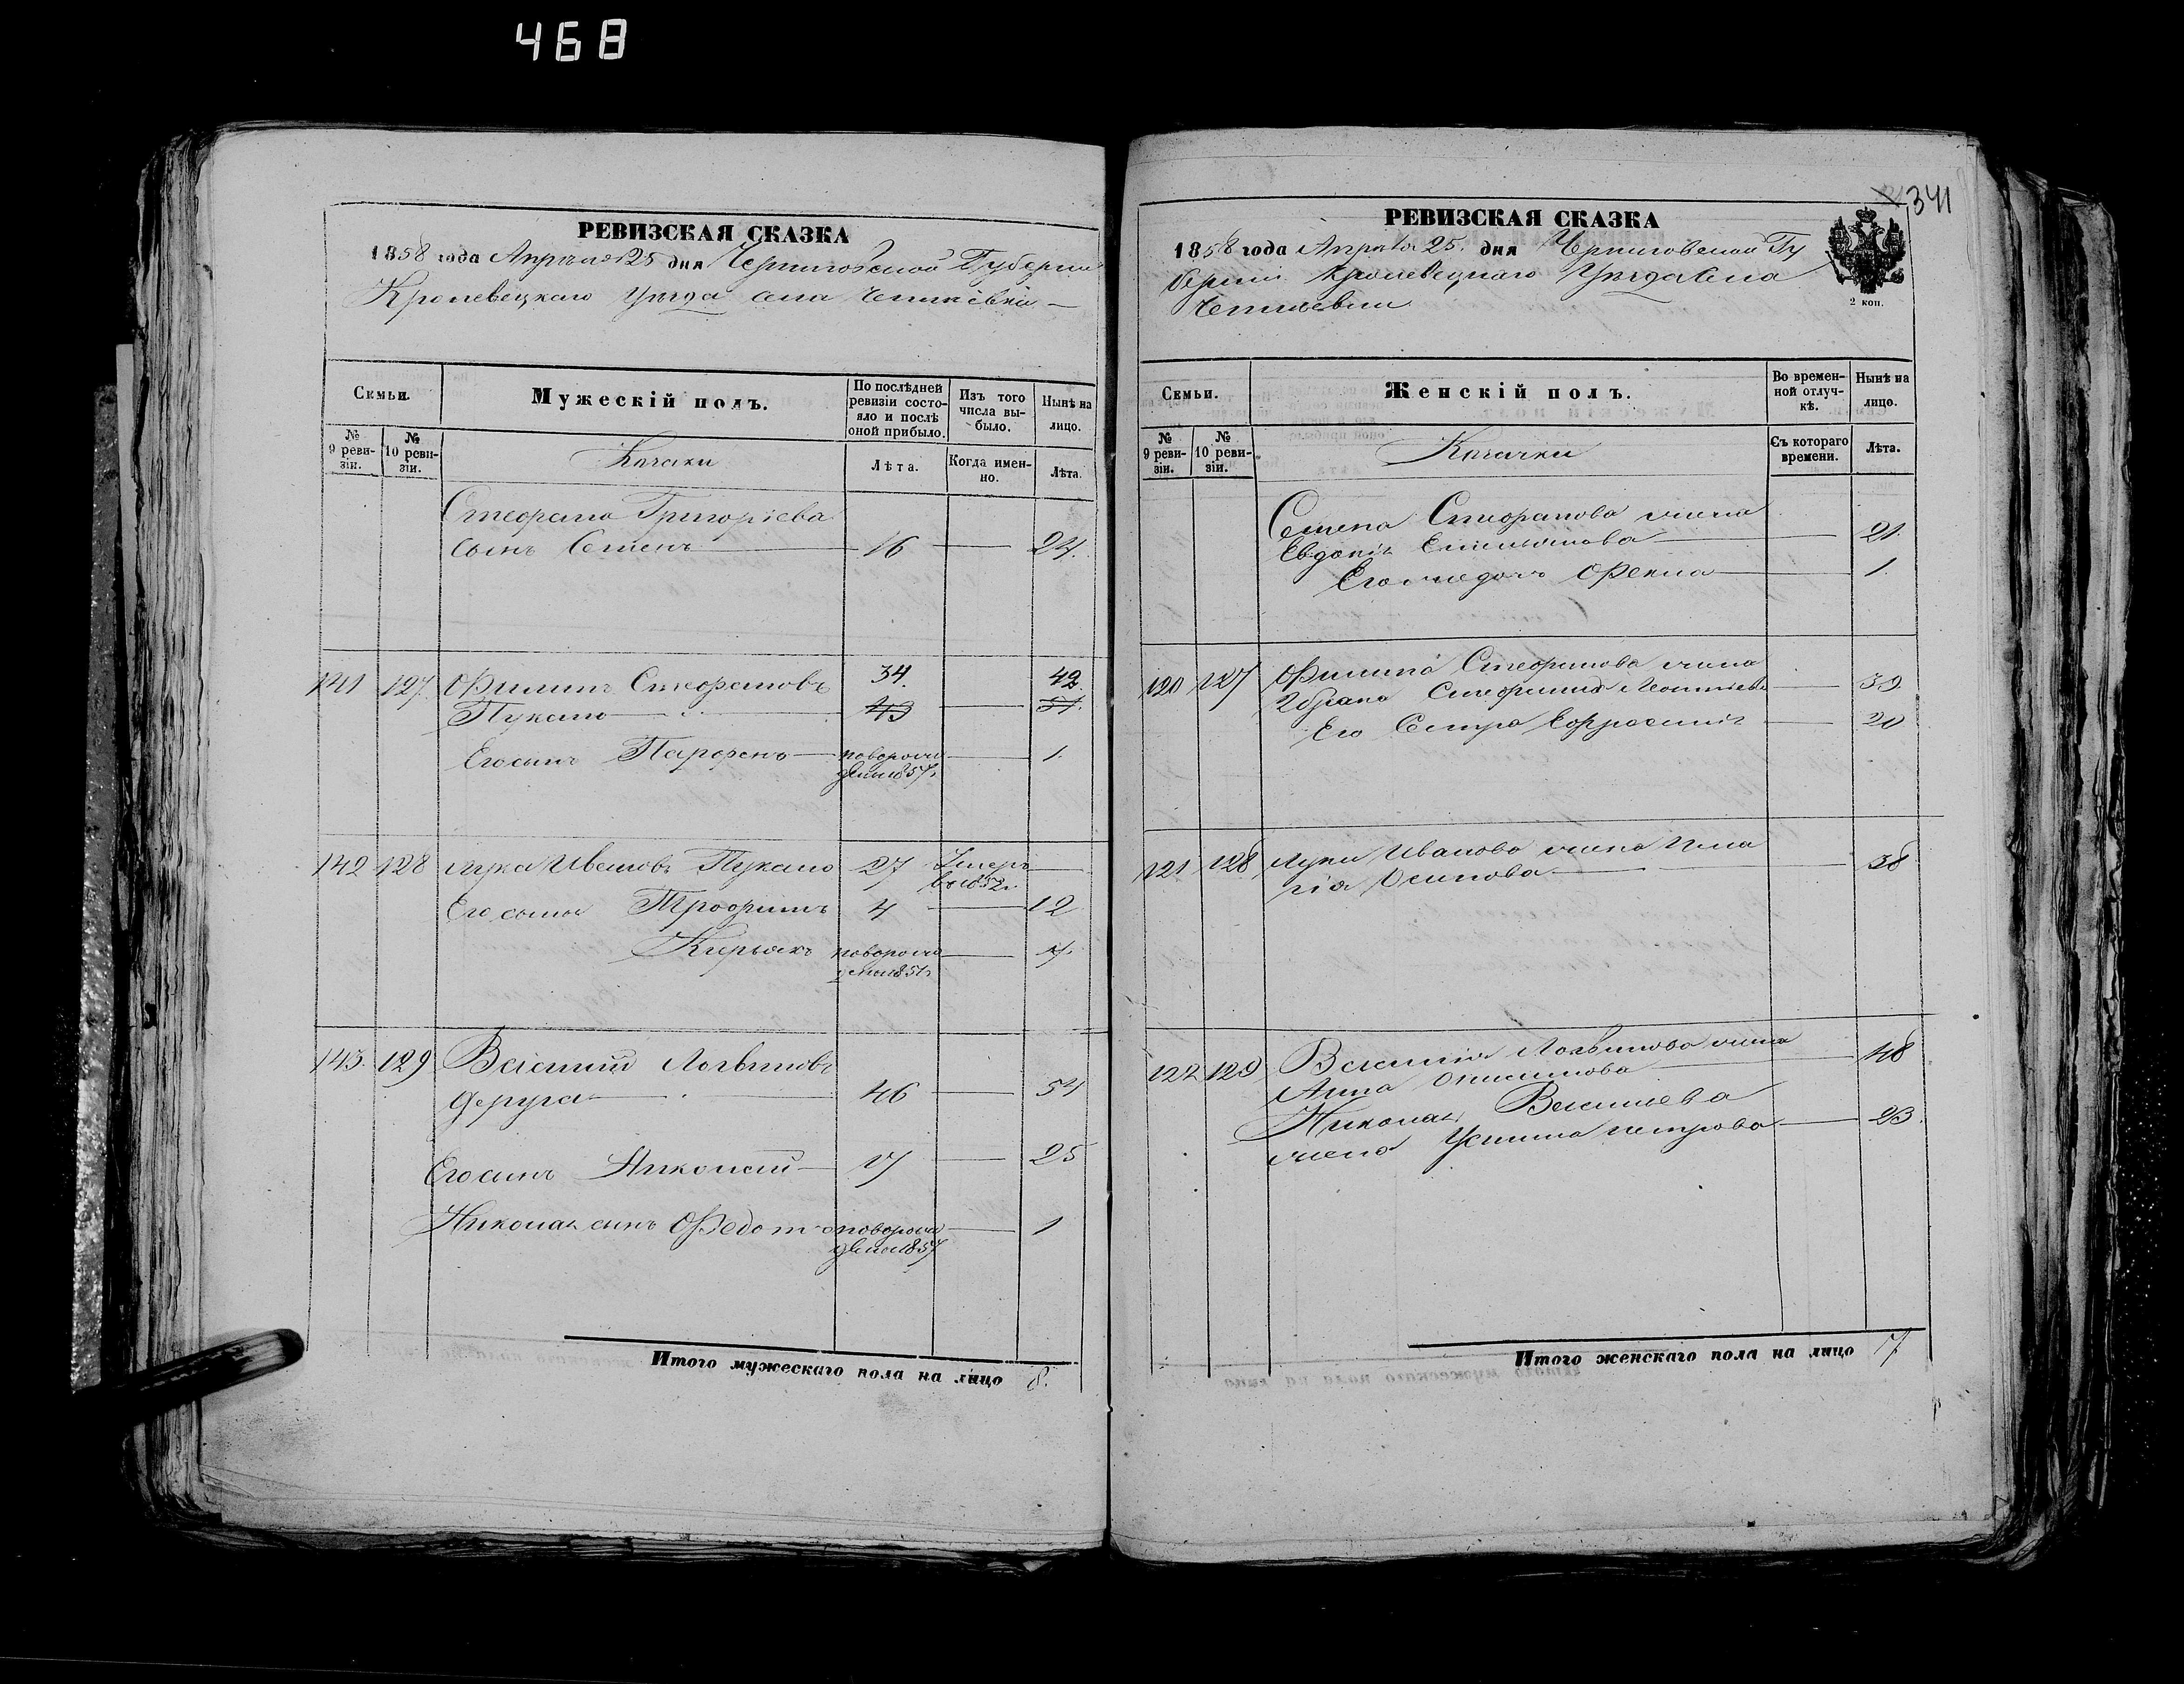 468
РЕВИЗСКАЯ СКАЗКА
1858 года Апреля 25 дня Черниговской Губернии
Кролевецкаго Уѣзда села
Семьи.
Мужескій полъ.
По послѣдней ревизіи состояло и послѣ оной прибыло.
Изъ того числа выбыло.
Нынѣ на лицо.
№ 9 ревизіи.
№ 10 ревизіи.
Козаки
Лѣта.
Когда именно.
Лѣта.
Стефана Григорьева
сынъ Семенъ 16 24.
141 127. Филипъ Стефановъ 34. 42.
43 51.
Его сынъ Парфенъ новорожденъ 1857. 1.
142 128 Лука Ивановъ 27 Умеръ въ 1852
Его сыны Трофимъ 4 12
Кирьякъ новорожденъ 1851 7.
143. 129 Василий Логвиновъ
Деруга 46 54
Его сынъ Николай 17 25
Николая сынъ Федотъ новорожденъ 1857 1
Итого мужескаго пола на лицо 8.
341
РЕВИЗСКАЯ СКАЗКА
1858 года Апреля 25. дня Черниговской Гу
берніи Кролевецкаго Уѣзда села
2 коп.
Семьи.
Женскій полъ.
Во временной отлучкѣ.
Нынѣ на лицо.
№ 9 ревизіи.
№ 10 ревизіи.
Козачки
Съ котораго времени.
Лѣта.
Семена Стефанова жена
Евдокія Емельянова 21.
Его дочь Фекла 1.
120 127 Филипа Стефанова жена
Стефанида Леонтьева 39.
Его Сестра Ефросинія 20
121 128 Луки Иванова жена Пела
гія Осипова 38
122 129 Василия Логвинова жена
Анна 48
Николая Васильева
жена Устина Петрова 23.
Итого женскаго пола на лицо 7